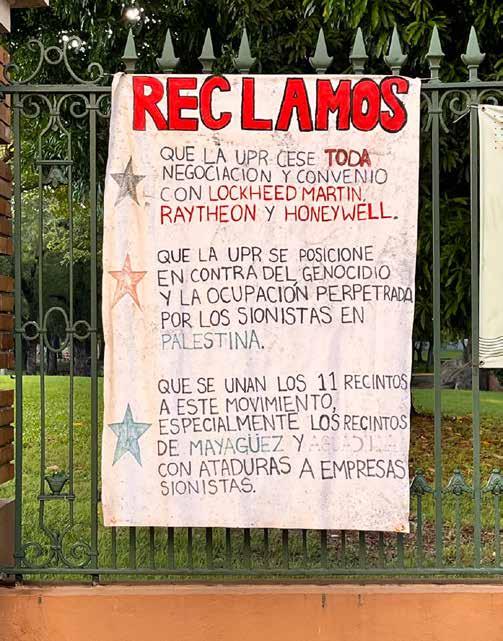 RECLAMOS
QUE LA UPR CESE TODA
NEGOCIACIÓN Y CONVENIO
CON LOCKHEED MARTIN,
RAYTHEON Y HONEYWELL.
QUE LA UPR SE POSICIONE
EN CONTRA DEL GENOCIDIO
Y LA OCUPACIÓN PERPETRADA
POR LOS SIONISTAS EN
PALESTINA.
QUE SE UNAN LOS 11 RECINTOS
A ESTE MOVIMIENTO,
ESPECIALMENTE LOS RECINTOS
DE MAYAGÜEZ Y AGUADILLA
CON ATADURAS A EMPRESAS
SIONISTAS.